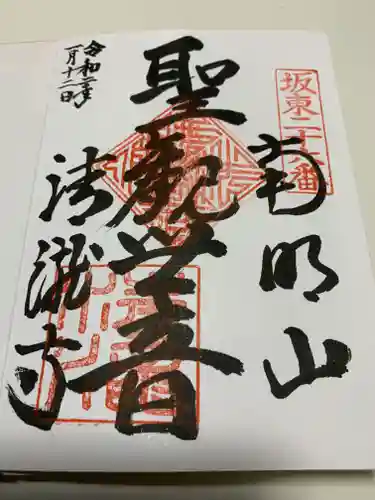 坂東二十六番
南明山
聖観世音
令和二年
一月十二日
清瀧寺